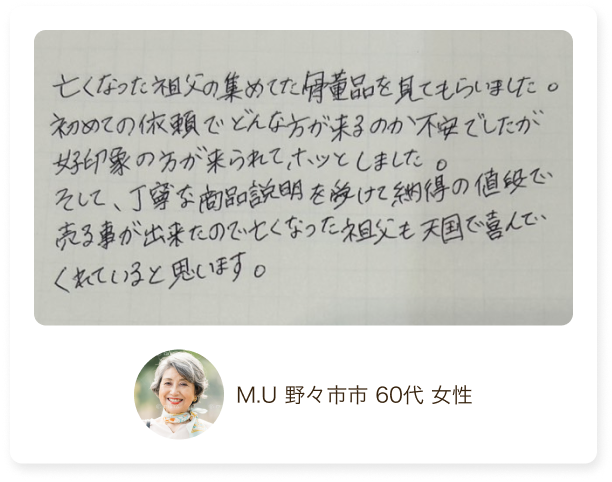 亡くなった祖父の集めてた骨董品を見てもらいました。
初めての依頼でどんな方が来るのか不安でしたが
好印象の方が来られて、ホッとしました。
そして、丁寧な商品説明を受けて納得の値段で
売る事が出来たので亡くなった祖父も天国で喜んで
くれていると思います。
M.U 野々市市 60代 女性